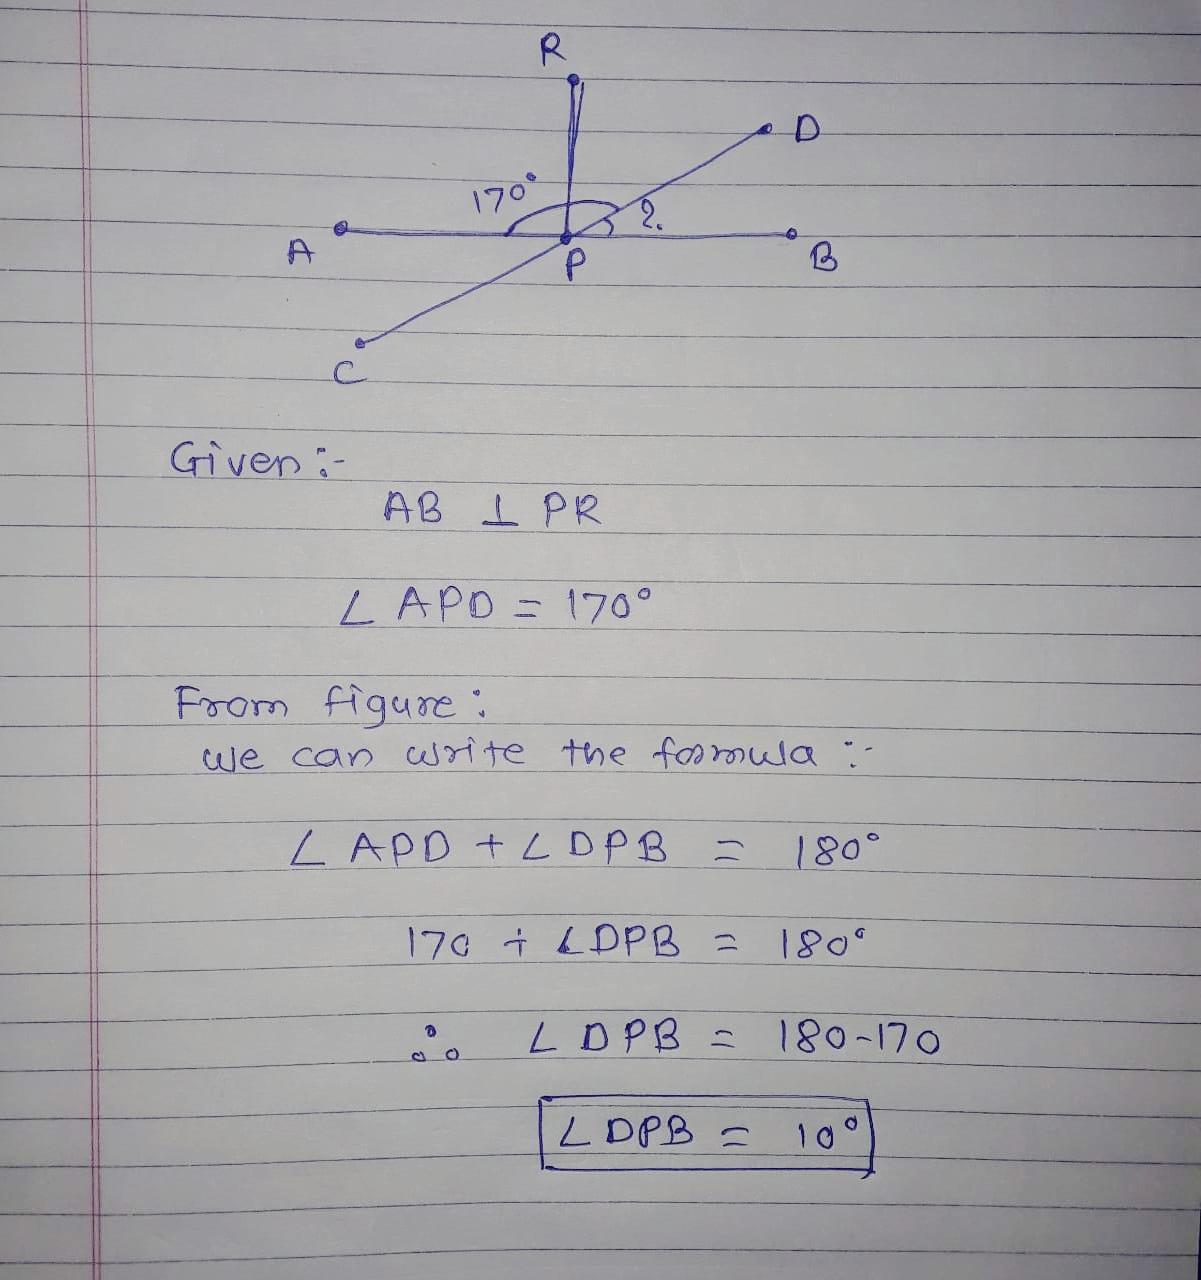 R
D
170°
2.
A
P
B
C
Given :-
AB ⊥ PR
∠ APD = 170°
From figure :
we can write the formula :-
∠ APD + ∠ DPB = 180°
170 + ∠DPB = 180°
∴ ∠ DPB = 180-170
∠ DPB = 10°